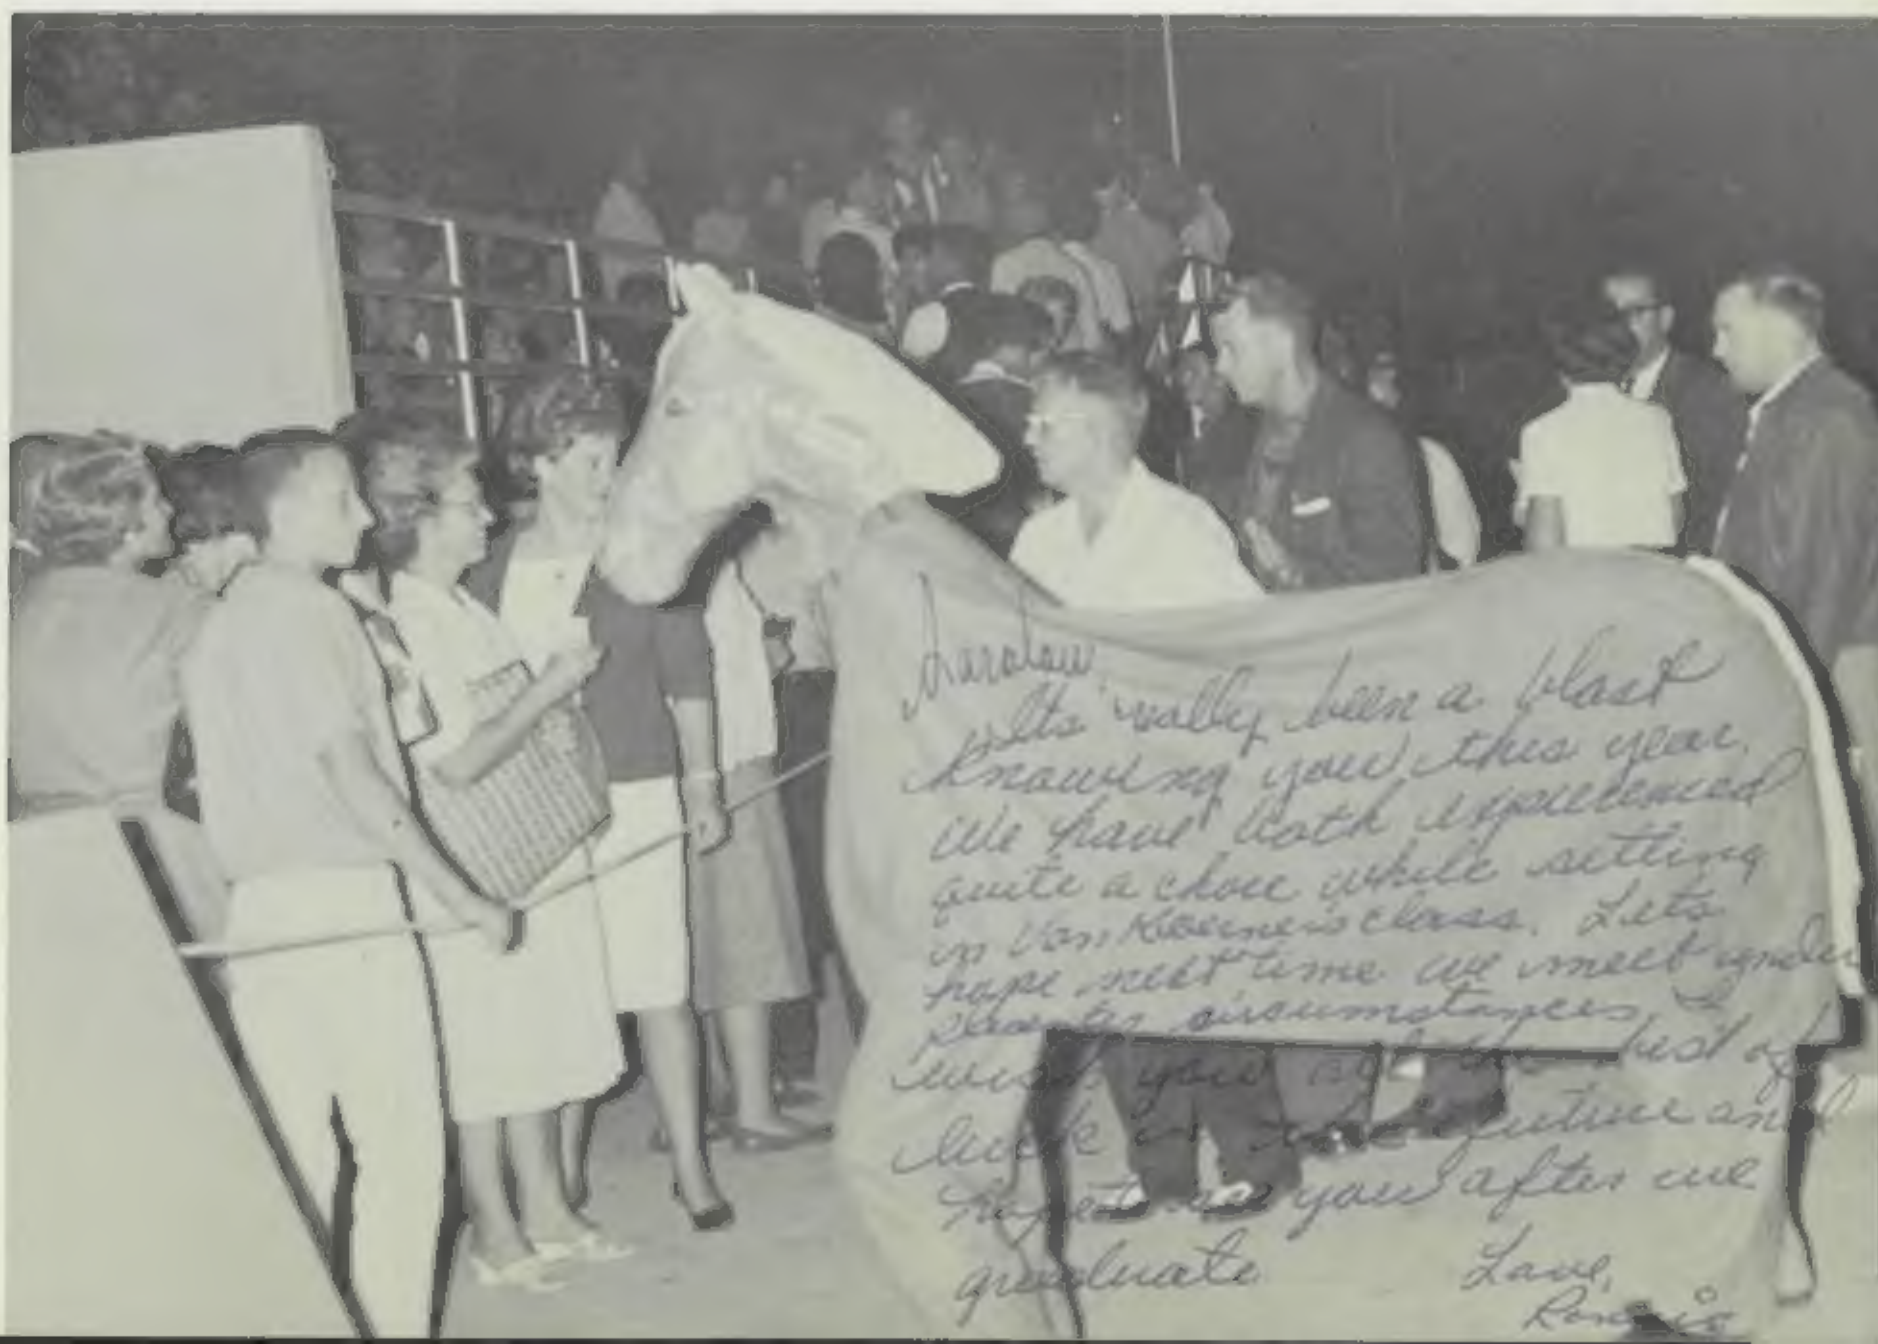 Its really been a blast
knowing you this year.
We have both experienced
quite a chore while setting
in Van Koerner's class. Lets
hope next time we meet under
circumstances. I
wish you all the best of
luck in the future and
hope to see you after we
graduate
Love,
Ronnie